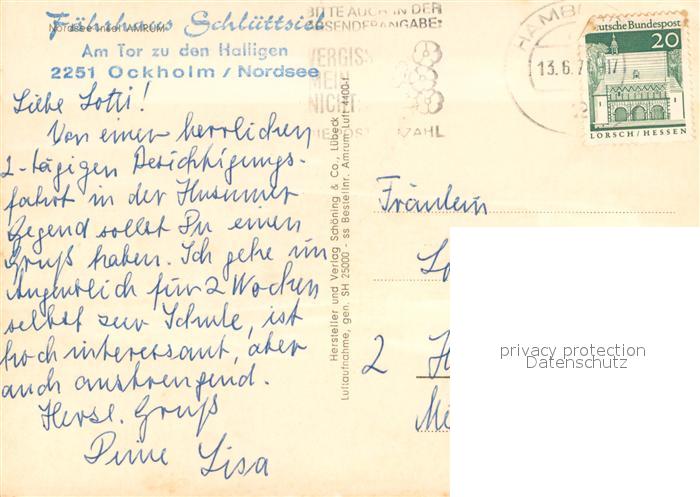 Nordsee Insel AMRUM
Fährhaus Schlüttsiel
Am Tor zu den Halligen
2251 Ockholm / Nordsee
Liebe Lotti!
Von einer herrlichen
2-tägigen Besichtigungs-
fahrt in der Husumer
Gegend sollst Du einen
Gruß haben. Ich gehe im
Augenblick für 2 Wochen
selbst zur Schule, ist
hoch interessant, aber
auch anstrengend.
Herzl. Gruß
Deine Lisa
Hersteller und Verlag Schöning & Co., Lübeck
Luftaufnahme, gen. SH 25000 - ss Bestellnr. Amrum Luft 4400-f.
BITTE AUCH IN DER
ABSENDERANGABE:
VERGISS
MEIN
NICHT
DIE POSTLEITZAHL
HAMBU
13.6.7
17
Deutsche Bundespost
20
LORSCH/HESSEN
Fräulein
Lo
2 H
Mi
privacy protection
Datenschutz